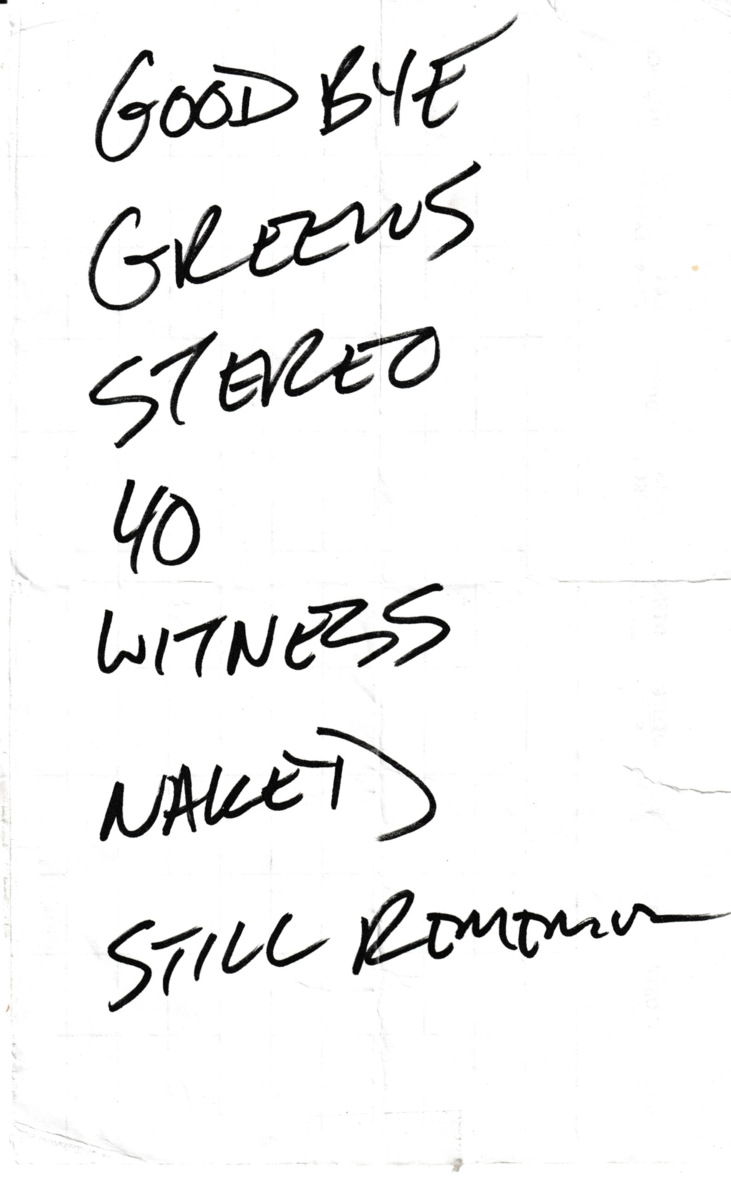 GOODBYE
GREENS
STEREO
40
WITNESS
NAKED
STILL REMEMBER